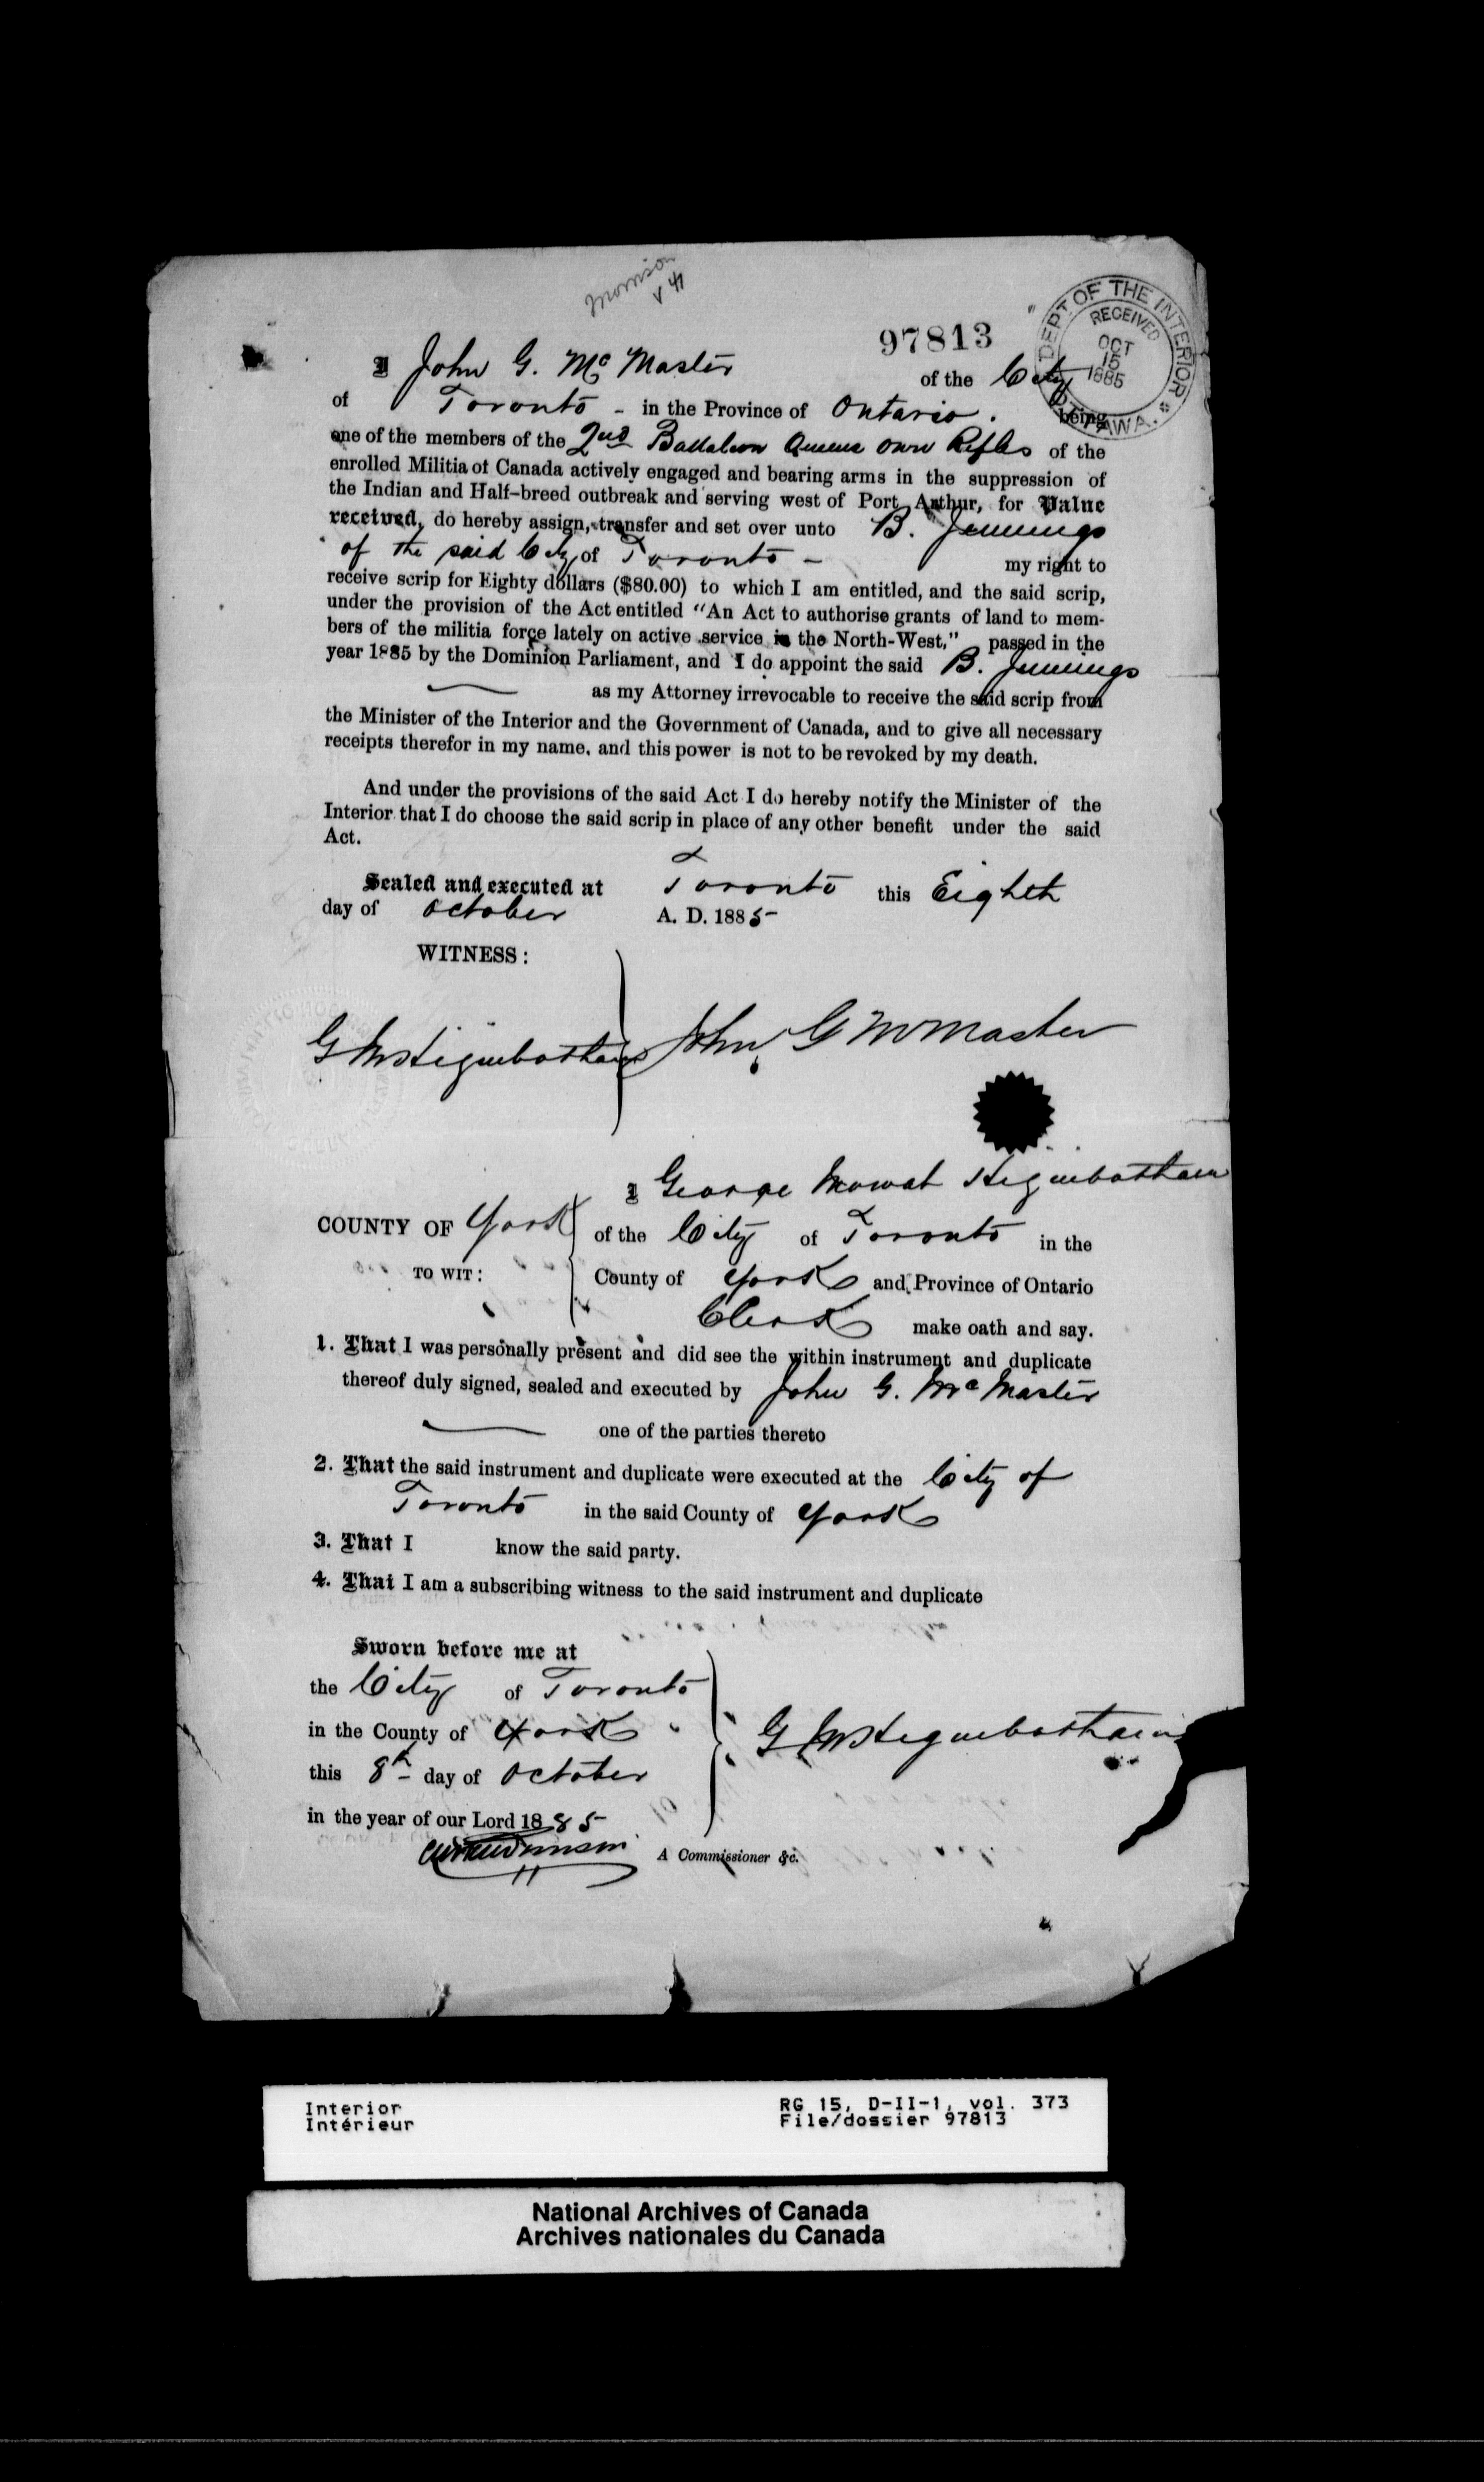 Morrison
97813
DEPT. OF THE INTERIOR
RECEIVED
OCT
15
1885
OTTAWA.
I John G. McMaster of the City
of Toronto - in the Province of Ontario. being
one of the members of the 2nd Battalion Queens Own Rifles of the
enrolled Militia of Canada actively engaged and bearing arms in the suppression of
the Indian and Half-breed outbreak and serving west of Port Arthur, for Value
received, do hereby assign, transfer and set over unto B. Jennings
of the said City of Toronto - my right to
receive scrip for Eighty dollars ($80.00) to which I am entitled, and the said scrip,
under the provision of the Act entitled "An Act to authorise grants of land to mem-
bers of the militia force lately on active service in the North-West," passed in the
year 1885 by the Dominion Parliament, and I do appoint the said B. Jennings
as my Attorney irrevocable to receive the said scrip from
the Minister of the Interior and the Government of Canada, and to give all necessary
receipts therefor in my name, and this power is not to be revoked by my death.
And under the provisions of the said Act I do hereby notify the Minister of the
Interior that I do choose the said scrip in place of any other benefit under the said
Act.
Sealed and executed at Toronto this Eighth
day of October A. D. 1885
WITNESS:
G M Higinbotham John G McMaster
I George Mowat Higinbotham
COUNTY OF York of the City of Toronto in the
TO WIT: County of York and Province of Ontario
Clerk make oath and say.
1. That I was personally present and did see the within instrument and duplicate
thereof duly signed, sealed and executed by John G. McMaster
one of the parties thereto
2. That the said instrument and duplicate were executed at the City of
Toronto in the said County of York
3. That I know the said party.
4. That I am a subscribing witness to the said instrument and duplicate
Sworn before me at
the City of Toronto
in the County of York
this 8th day of October
in the year of our Lord 1885
G M Higinbotham
A Commissioner &c.
Interior
Intérieur
RG 15, D-II-1, vol. 373
File/dossier 97813
National Archives of Canada
Archives nationales du Canada